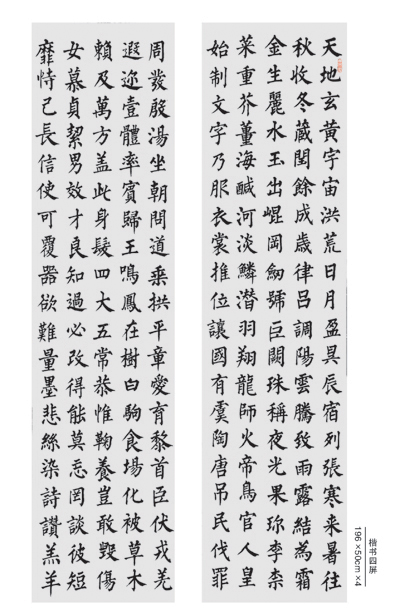 天地玄黃宇宙洪荒日月盈昃辰宿列張寒來暑往
秋收冬藏閏餘成歲律呂調陽雲騰致雨露結為霜
金生麗水玉出崐岡劒號巨闕珠稱夜光果珎李柰
菜重芥薑海鹹河淡鱗潛羽翔龍師火帝鳥官人皇
始制文字乃服衣裳推位讓國有虞陶唐吊民伐罪
周發殷湯坐朝問道垂拱平章愛育黎首臣伏戎羌
遐迩壹體率賓歸王鳴鳳在樹白駒食場化被草木
賴及萬方盖此身髮四大五常恭惟鞠養豈敢毀傷
女慕貞絜男效才良知過必改得能莫忘罔談彼短
靡恃己長信使可覆器欲難量墨悲絲染詩讚羔羊
楷书四屏
196×50cm×4